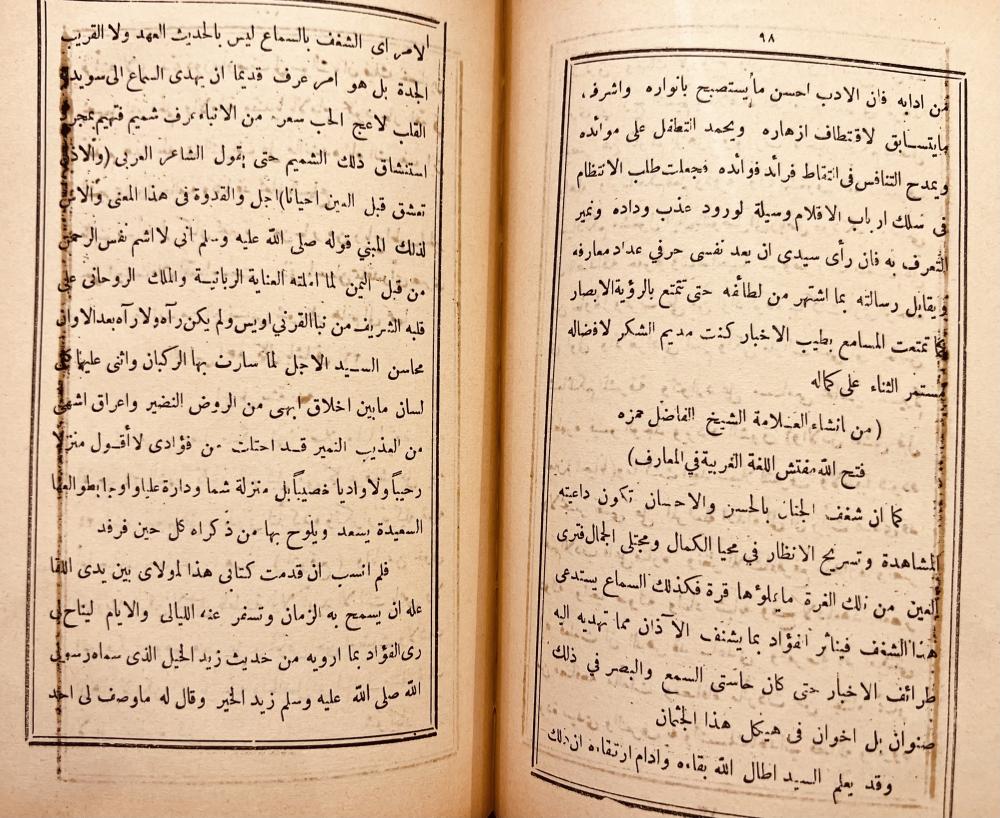 ٩٨
من ادابه فان الادب احسن ما يستصبح بانواره واشرف
مايتسابق لاقتطاف ازهاره ويحمد التطفل على موائده
ويمدح التنافس فى التقاط فرائد فوائده فجعلت طلب الانتظام
فى سلك ارباب الاقلام وسيلة لورود عذب وداده ونمير
التعرف به فان رأى سيدى ان يعد نفسى حرفي عداد معارفه
ويقابل رسالته بما اشتهر من لطائفه حتى تتمتع بالرؤية الابصار
كما تمتعت المسامع بطيب الاخبار كنت مديم الشكر لافضاله
مستمر الثناء على كماله
(من انشاء العلامة الشيخ الفاضل حمزه
فتح الله مفتش اللغة العربية في المعارف)
كما ان شغف الجنان بالحسن والاحسان تكون داعيته
المشاهدة وتسريح الانظار في محيا الكمال ومجتلى الجمال فترى
العين من تلك الغرة مايملؤها قرة فكذلك السماع يستدعى
هذا الشغف فيتأثر الفؤاد بما يشنف الآذان مما تهديه اليه
طرائف الاخبار حتى كان حاستى السمع والبصر في ذلك
صنوان بل اخوان فى هيكل هذا الجثمان
وقد يعلم السيد اطال الله بقاءه وادام ارتقاءه ان ذلك
الامر اى الشغف بالسماع ليس بالحديث العهد ولا القريب
الجدة بل هو امر عرف قديما ان يهدى السماع الى سويداء
القلب لاعج الحب سعر من الانباء عرف شميم فتهيم بمجرد
استنشاق ذلك الشميم حتى يقول الشاعر العربى (والاذن
تعشق قبل العين احيانا) اجل والقدوة فى هذا المعنى والاس
لذلك المبني قوله صلى الله عليه وسلم انى لاشم نفس الرحمن
من قبل اليمن لما املته العناية الربانية والملك الروحانى على
قلبه الشريف من نبأ القرني اويس ولم يكن رآه ولا رآه بعد الاوان
محاسن السيد الاجل لما سارت بها الركبان واثنى عليها كل
لسان مابين اخلاق ابهى من الروض النضير واعراق اشهى
من العذيب النمير قد احتلت من فؤادى لا أقول منزلا
رحيباً ولا واديا خصيباً بل منزلة شما ودارة عليا واوجا بطوالعها
السعيدة يسعد ويلوح بها من ذكراه كل حين فرقد
فلم انسب ان قدمت كتابى هذا لمولاى بين يدى اللقا
عله ان يسمح به الزمان وتسفر عنه الليالى والايام ليتاح لى
رى الفؤاد بما ارويه من حديث زيد الخيل الذى سماه رسول
الله صلى الله عليه وسلم زيد الخير وقال له ماوصف لى احد